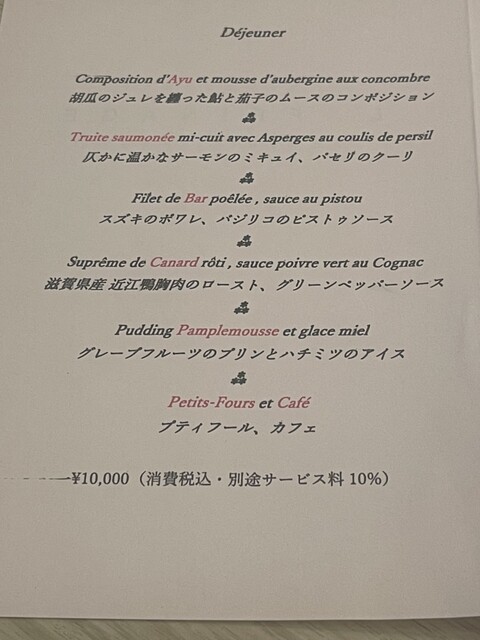 Déjeuner
Composition d'Ayu et mousse d'aubergine aux concombre
胡瓜のジュレを纏った鮎と茄子のムースのコンポジション
Truite saumonée mi-cuit avec Asperges au coulis de persil
仄かに温かなサーモンのミキュイ、パセリのクーリ
Filet de Bar poêlée , sauce au pistou
スズキのポワレ、バジリコのピストゥソース
Suprême de Canard rôti , sauce poivre vert au Cognac
滋賀県産 近江鴨胸肉のロースト、グリーンペッパーソース
Pudding Pamplemousse et glace miel
グレープフルーツのプリンとハチミツのアイス
Petits-Fours et Café
プティフール、カフェ
¥10,000（消費税込・別途サービス料 10%）